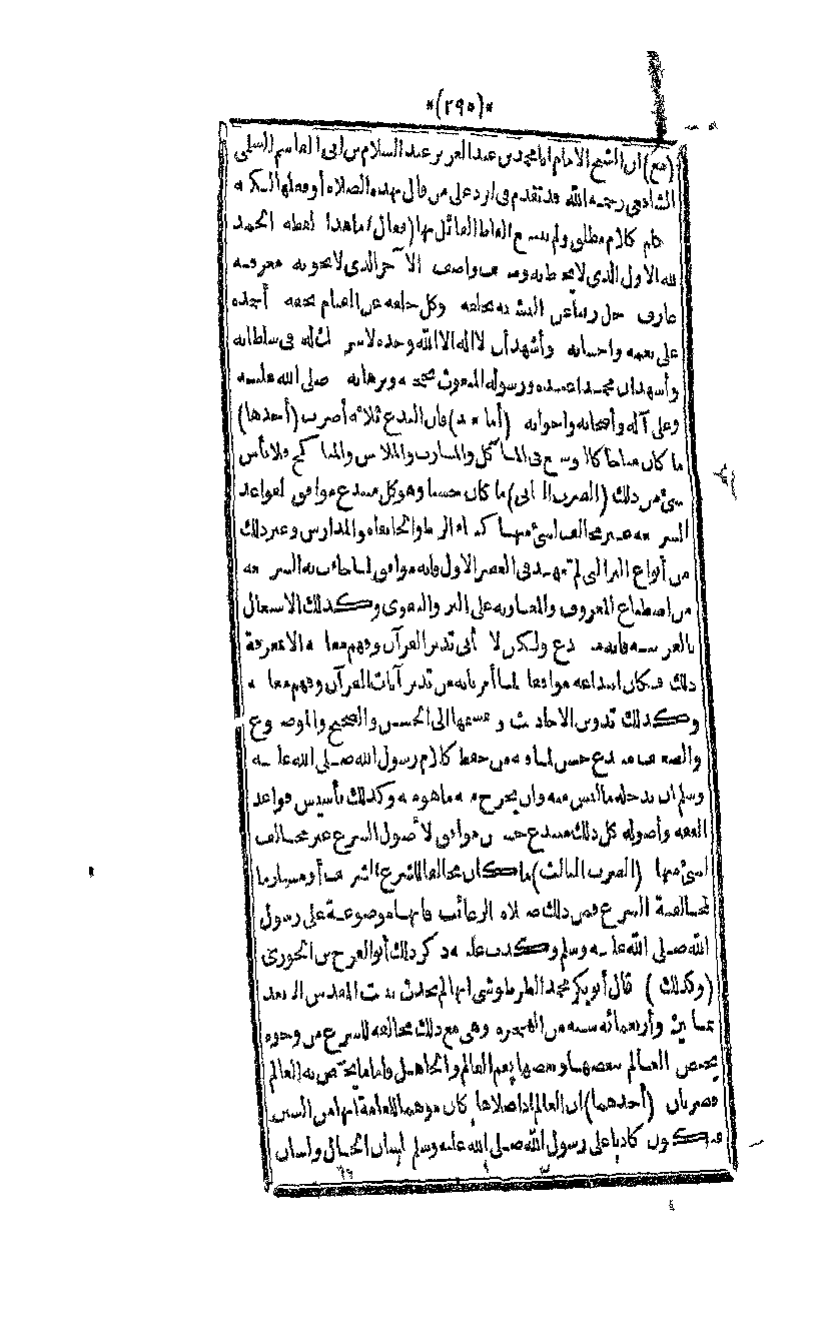 *(٢٩٥)*
(مع) ان الشيخ الامام أبا محمد بن عبد العزيز بن عبد السلام بن أبى القاسم السلمى
الشافعى رحمه الله قد تقدم فى الرد على من قال بهذه الصلاة أو فعلها المكره
كلام مطلق ولم يسع الفاظ القائل بها (فقال) ما هذا لفظه الحمد
لله الاول الذى لا يحيط به وصف واصف الآخر الذى لا يحويه معرفة
عارف جل ربنا عن التشبيه بخلقه وكل خلقه عن القيام بحقه أحمده
على نعمه واحسانه وأشهد أن لا اله الا الله وحده لا شريك له فى سلطانه
وأشهد أن محمدا عبده ورسوله المبعوث بحججه وبرهانه صلى الله عليه
وعلى آله وأصحابه واخوانه (أما بعد) فان البدع ثلاثة أضرب (أحدها)
ما كان مباحا كالتوسع فى المآكل والمشارب والملابس والمناكح فلا بأس
بشئ من ذلك (الضرب الثانى) ما كان حسنا وهو كل مبتدع موافق لقواعد
الشريعة غير مخالف لشئ منها كبناء الربط والخانقاه والمدارس وغير ذلك
من أنواع البر التى لم تعهد فى العصر الاول فانه موافق لما جاءت به الشريعة
من اصطناع المعروف والمعاونة على البر والتقوى وكذلك الاشتغال
بالعربية فانه مبتدع ولكن لا يتأتى تدبر القرآن وفهم معانيه الا بمعرفة
ذلك فكان ابتداعه موافقا لما أمرنا به من تدبر آيات القرآن وفهم معانيه
وكذلك تدوين الاحاديث وتقسيمها الى الحسن والصحيح والموضوع
والضعيف مبتدع حسن لما فيه من حفظ كلام رسول الله صلى الله عليه
وسلم ان يدخله ما ليس منه وان يخرج منه ما هو منه وكذلك تأسيس قواعد
الفقه وأصوله كل ذلك مبتدع حسن موافق لأصول الشرع غير مخالف
لشئ منها (الضرب الثالث) ما كان مخالفا للشرع الشريف أو مستلزما
لمخالفة الشرع فمن ذلك صلاة الرغائب فانها موضوعة على رسول
الله صلى الله عليه وسلم وكذب عليه ذكر ذلك أبو الفرج بن الجوزى
(وكذلك) قال أبو بكر محمد الطرطوشى انها لم تحدث ببيت المقدس الا بعد
ثمانين وأربعمائة سنة من الهجرة وهى مع ذلك مخالفة للشرع من وجوه
يختص العالم ببعضها وبعضها يعم العالم والجاهل فاما ما يختص به العالم
فضربان (أحدهما) ان العالم اذا صلاها كان موهما للعامة انها من السنن
فيكون كاذبا على رسول الله صلى الله عليه وسلم بلسان الحال ولسان